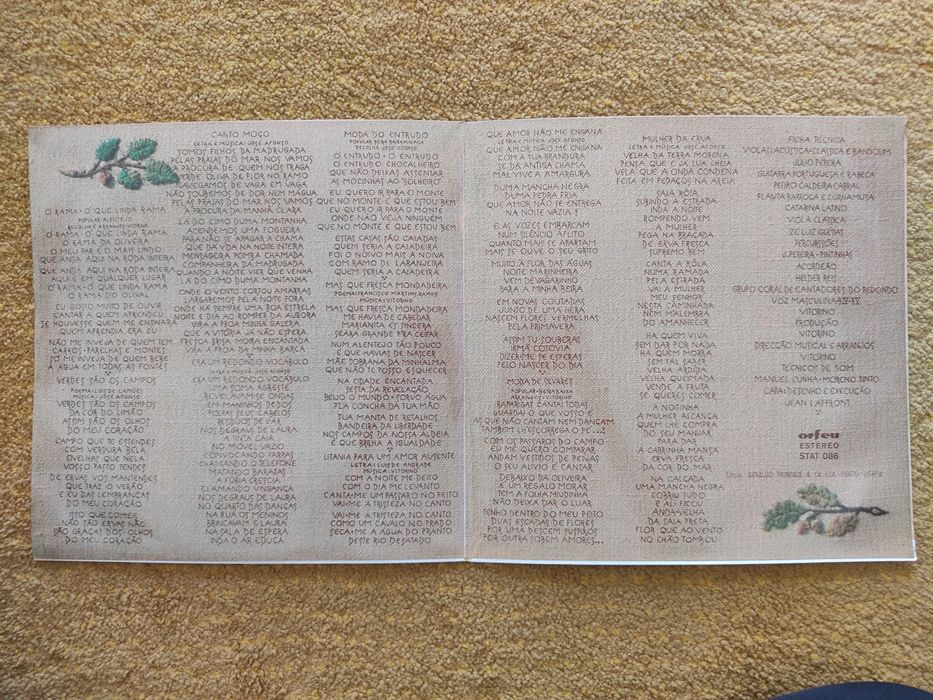 O RAMA · O QUE LINDA RAMA
POPULAR ALENTEJO
RECOLHA E ARRANJOS: VITORINO
O RAMA · O QUE LINDA RAMA
O RAMA DA OLIVEIRA
O MEU PAR É O MAIS LINDO
QUE ANDA AQUI NA RODA INTEIRA
QUE ANDA AQUI NA RODA INTEIRA
AQUI E EM QUALQUER LUGAR
O RAMA · O QUE LINDA RAMA
O RAMA DO OLIVAL
EU GOSTO MUITO DE OUVIR
CANTAR A QUEM APRENDEU
SE HOUVESSE QUEM ME ENSINARA
QUEM APRENDIA ERA EU
NÃO ME INVEJA DE QUEM TEM
CARROS · PARELHAS E MONTES
SÓ ME INVEJA DE QUEM BEBE
A ÁGUA EM TODAS AS FONTES
VERDES SÃO OS CAMPOS
POEMA: LUIS DE CAMÕES
MÚSICA: JOSÉ AFONSO
VERDES SÃO OS CAMPOS
DA COR DO LIMÃO
ASSIM SÃO OS OLHOS
DO MEU CORAÇÃO
CAMPO QUE TE ESTENDES
COM VERDURA BELA
OVELHAS QUE NELA
VOSSO PASTO TENDES
DE ERVAS VOS MANTENDES
QUE TRAZ O VERÃO
E EU DAS LEMBRANÇAS
DO MEU CORAÇÃO
ISTO QUE COMEIS
NÃO SÃO ERVAS NÃO
SÃO GRAÇAS DOS OLHOS
DO MEU CORAÇÃO
CANTO MOÇO
LETRA E MÚSICA: JOSÉ AFONSO
SOMOS FILHOS DA MADRUGADA
PELAS PRAIAS DO MAR NOS VAMOS
À PROCURA DE QUEM NOS TRAGA
VERDE OLIVA DE FLOR NO RAMO
NAVEGAMOS DE VAGA EM VAGA
NÃO SOUBEMOS DE DOR NEM MÁGUA
PELAS PRAIAS DO MAR NOS VAMOS
À PROCURA DA MANHÃ CLARA
LÁ DO CIMO DUMA MONTANHA
ACENDEMOS UMA FOGUEIRA
PARA NÃO SE APAGAR A CHAMA
QUE DÁ VIDA NA NOITE INTEIRA
MENSAGEIRA POMBA CHAMADA
COMPANHEIRA DA MADRUGADA
QUANDO A NOITE VIER QUE VENHA
LÁ DO CIMO DUMA MONTANHA
ONDE O VENTO CORTOU AMARRAS
LARGAREMOS PELA NOITE FORA
ONDE HÁ SEMPRE UMA BOA ESTRELA
NOITE E DIA AO ROMPER DA AURORA
VIRA A PROA MINHA GALERA
QUE A VITÓRIA JÁ NÃO ESPERA
FRESCA BRISA MOIRA ENCANTADA
VIRA A PROA DA MINHA BARCA
ERA UM REDONDO VOCÁBULO
LETRA E MÚSICA: JOSÉ AFONSO
ERA UM REDONDO VOCÁBULO
UMA SOMA AGRESTE
REVELAVAM-SE ONDAS
EM MANINHOS DEDOS
POLPAS SEUS CABELOS
RESÍDUOS DE LAR
NOS DEGRAUS DE LAURA
A TINTA CAÍA
NO MÓVEL VAZIO
CONVOCANDO FARPAS
CHAMANDO O TELEFONE
MATANDO BARATAS
A FÚRIA CRESCIA
CLAMANDO VINGANÇA
NOS DEGRAUS DE LAURA
NO QUARTO DAS DANÇAS
NA RUA OS MENINOS
BRINCAVAM E LAURA
NA SALA DE ESPERA
INDA O AR EDUCA
MODA DO ENTRUDO
POPULAR BEIRA BAIXA-MALPICA
RECOLHA JOSÉ AFONSO
O ENTRUDO · O ENTRUDO
O ENTRUDO CHOCALHEIRO
QUE NÃO DEIXAS ASSENTAR
AS MOCINHAS AO SOLHEIRO
EU QUERO IR PARA O MONTE
QUE NO MONTE É QUE ESTOU BEM
EU QUERO IR PARA O MONTE
ONDE NÃO VEJA NINGUÉM
QUE NO MONTE É QUE ESTOU BEM
ESTAS CASAS SÃO CAIADAS
QUEM SERIA A CAIADEIRA
FOI O NOIVO MAIS A NOIVA
COM RAMO DE LARANJEIRA
QUEM SERIA A CAIADEIRA
MAS QUE FRESCA MONDADEIRA
POEMA: FRANCISCO MARTINS RAMOS
MÚSICA: VITORINO
MAS QUE FRESCA MONDADEIRA
ME HAVIA DE CABEDAR
MARIANITA ÉS SINCERA
SEARA GRANDE PRA CEIFAR
NUM ALENTEJO TÃO POUCO
É QUE HAVIAS DE NASCER
MÃE SOBRANA DA MINH'ALMA
QUE NÃO TE POSSO ESQUECER
NA CIDADE ENCANTADA
SESTA DA REVELAÇÃO
BEIJO O MUNDO · SORVO ÁGUA
PLA CONCHA DA TUA MÃO
TUA MANTA DE RETALHOS
BANDEIRA DA LIBERDADE
NOS CAMPOS DA NOSSA ALDEIA
É QUE BRILHA A IGUALDADE
LITANIA PARA UM AMOR AUSENTE
LETRA: LUÍS DE ANDRADE
MÚSICA: VITORINO
COM A NOITE ME DEITO
COM O DIA ME LEVANTO
CANTA-ME UM PÁSSARO NO PEITO
VAI-ME A TRISTEZA NO CANTO
VAI-ME A TRISTEZA NO CANTO
COMO UM CAVALO NO PRADO
SECA-ME A ÁGUA DO PRANTO
DESTE RIO DESATADO
QUE AMOR NÃO ME ENGANA
LETRA E MÚSICA: JOSÉ AFONSO
QUE AMOR NÃO ME ENGANA
COM A SUA BRANDURA
SE DA ANTIGA CHAMA
MAL VIVE A AMARGURA
DUMA MANCHA NEGRA
DUMA PEDRA FRIA
QUE AMOR NÃO SE ENTREGA
NA NOITE VAZIA ?
E AS VOZES EMBARCAM
NUM SILÊNCIO AFLITO
QUANTO MAIS SE APARTAM
MAIS SE OUVE O SEU GRITO
MUITO À FLOR DAS ÁGUAS
NOITE MARINHEIRA
VEM DEVAGARINHO
PARA A MINHA BEIRA
EM NOVAS COUTADAS
JUNTO DE UMA HERA
NASCEM FLORES VERMELHAS
PELA PRIMAVERA
ASSIM TU SOUBERAS
IRMÃ COTOVIA
DIZER-ME SE ESPERAS
PELO NASCER DO DIA
MODA DE OLVARES
POPULAR-BEIRA BAIXA
ARRANJO: VITORINO
RAPARIGAS CANTAI TODAS
GUARDAI O QUE VOSSO É
AS QUE NÃO CANTAM NEM DANÇAM
TAMBÉM LH'ESCORREGA O PÉ...!
COM OS PÁSSAROS DO CAMPO
EU ME QUERO COMPARAR
ANDAM VESTIDOS DE PENAS
O SEU ALÍVIO É CANTAR
DEBAIXO DA OLIVEIRA
É UM REGALO MORAR
TEM A FOLHA MIUDINHA
NÃO DEIXA DAR O LUAR
TENHO DENTRO DO MEU PEITO
DUAS ESCADAS DE FLORES
POR UMA DESCEM SUSPIROS
POR OUTRA SOBEM AMORES...
MULHER DA ERVA
LETRA E MÚSICA: JOSÉ AFONSO
VELHA DA TERRA MORENA
PENSA QUE É JÁ LUA CHEIA
VELA QUE A ONDA CONDENA
FEITA EM PEDAÇOS NA AREIA
SAIA ROTA
SUBINDO A ESTRADA
INDA A NOITE
ROMPENDO VEM
A MULHER
PEGA NA BRAÇADA
DE ERVA FRESCA
SUPREMO BEM
CANTA A ROLA
NUMA RAMADA
PELA ESTRADA
VAI A MULHER
MEU SENHOR
NESTA CAMINHADA
NEM M'ALEMBRA
DO AMANHECER
HÁ QUEM VIVA
SEM DAR POR NADA
HÁ QUEM MORRA
SEM TAL SABER
VELHA ARDIDA
VELHA QUEIMADA
VENDE A FRUTA
SE QUERES COMER
À NOITINHA
A MULHER ALCANÇA
QUEM LHE COMPRA
DO SEU MANJAR
PARA DAR
À CABRINHA MANSA
ERVA FRESCA
DA COR DO MAR
NA CALÇADA
UMA MANCHA NEGRA
COBRIU TUDO
E ALI FICOU
ANDA · VELHA
DA SAIA PRETA
FLOR QUE AO VENTO
NO CHÃO TOMBOU
FICHA TÉCNICA
VIOLAS: ACÚSTICA · CLÁSSICA E BANDOLIM
JÚLIO PEREIRA
GUITARRA PORTUGUESA E RABECA
PEDRO CALDEIRA CABRAL
FLAUTA BARROCA E CORNAMUSA
CATARINA LATINO
VIOLA CLÁSSICA
ZÉ LUIZ IGLÉSIAS
PERCUSSÕES
J. PEREIRA · PINTINHAS
ACORDEÃO
HELDER REIS
GRUPO CORAL DE CANTADORES DO REDONDO
VOZ MASCULINA
VITORINO
PRODUÇÃO
VITORINO
DIRECÇÃO MUSICAL E ARRANJOS
VITORINO
TÉCNICOS DE SOM
MANUEL CUNHA · MORENO PINTO
CAPA: DESENHO E EXECUÇÃO
JEAN LAFFRONT
orfeu
ESTEREO
STAT 086
Edição ARNALDO TRINDADE & CA. LDA. PORTO